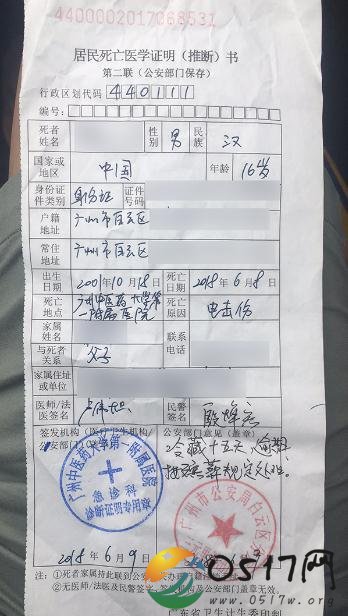 4400002017068531
居民死亡医学证明（推断）书
第二联（公安部门保存）
行政区划代码 440111
编号：
死者姓名 性别 男 民族 汉
国家或地区 中国 年龄 16岁
身份证件类别 身份证 证件号码
户籍地址 广州市白云区
常住地址 广州市白云区
出生日期 2001年10月18日 死亡日期 2018年6月8日
死亡地点 广州中医药大学第一附属医院 死亡原因 电击伤
家属姓名 联系电话
与死者关系 父子
家属住址或单位
医师/法医签名 民警签名
签发机构（医疗卫生机构/公安部门） 公安部门意见（盖章）
冷藏十五天，逾期
按 规定处理。
广州中医药大学第一附属医院
急诊科
疾病诊断证明专用章
广州市公安局白云区
2018年6月9日
注：①死者家属持此联到公安部门办理
②无医师/法医及民警签字、 及公安部门盖章无效。
广东省卫生计生委印制
0517网
www.0517w.org